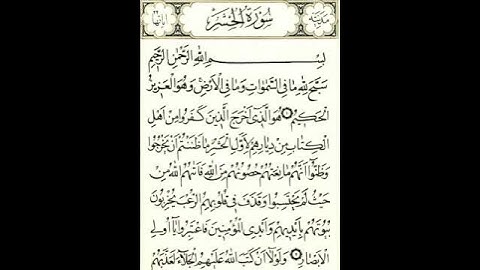 مدنية سورة الحشر آياتها
بِسْمِ اللهِ الرَّحْمٰنِ الرَّحِيمِ
سَبَّحَ لِلّٰهِ مَا فِي السَّمٰوَاتِ وَمَا فِي الْاَرْضِ وَهُوَ الْعَزِيزُ
الْحَكِيمُ هُوَ الَّذِي اَخْرَجَ الَّذِينَ كَفَرُوا مِنْ اَهْلِ
الْكِتَابِ مِنْ دِيَارِهِمْ لِاَوَّلِ الْحَشْرِ مَا ظَنَنْتُمْ اَنْ يَخْرُجُوا
وَظَنُّوا اَنَّهُمْ مَانِعَتُهُمْ حُصُونُهُمْ مِنَ اللهِ فَاَتٰيهُمُ اللهُ مِنْ
حَيْثُ لَمْ يَحْتَسِبُوا وَقَذَفَ فِي قُلُوبِهِمُ الرُّعْبَ يُخْرِبُونَ
بُيُوتَهُمْ بِاَيْدِيهِمْ وَاَيْدِي الْمُؤْمِنِينَ فَاعْتَبِرُوا يَا اُولِي
الْاَبْصَارِ وَلَوْلَا اَنْ كَتَبَ اللهُ عَلَيْهِمُ الْجَلَاءَ لَعَذَّبَهُمْ